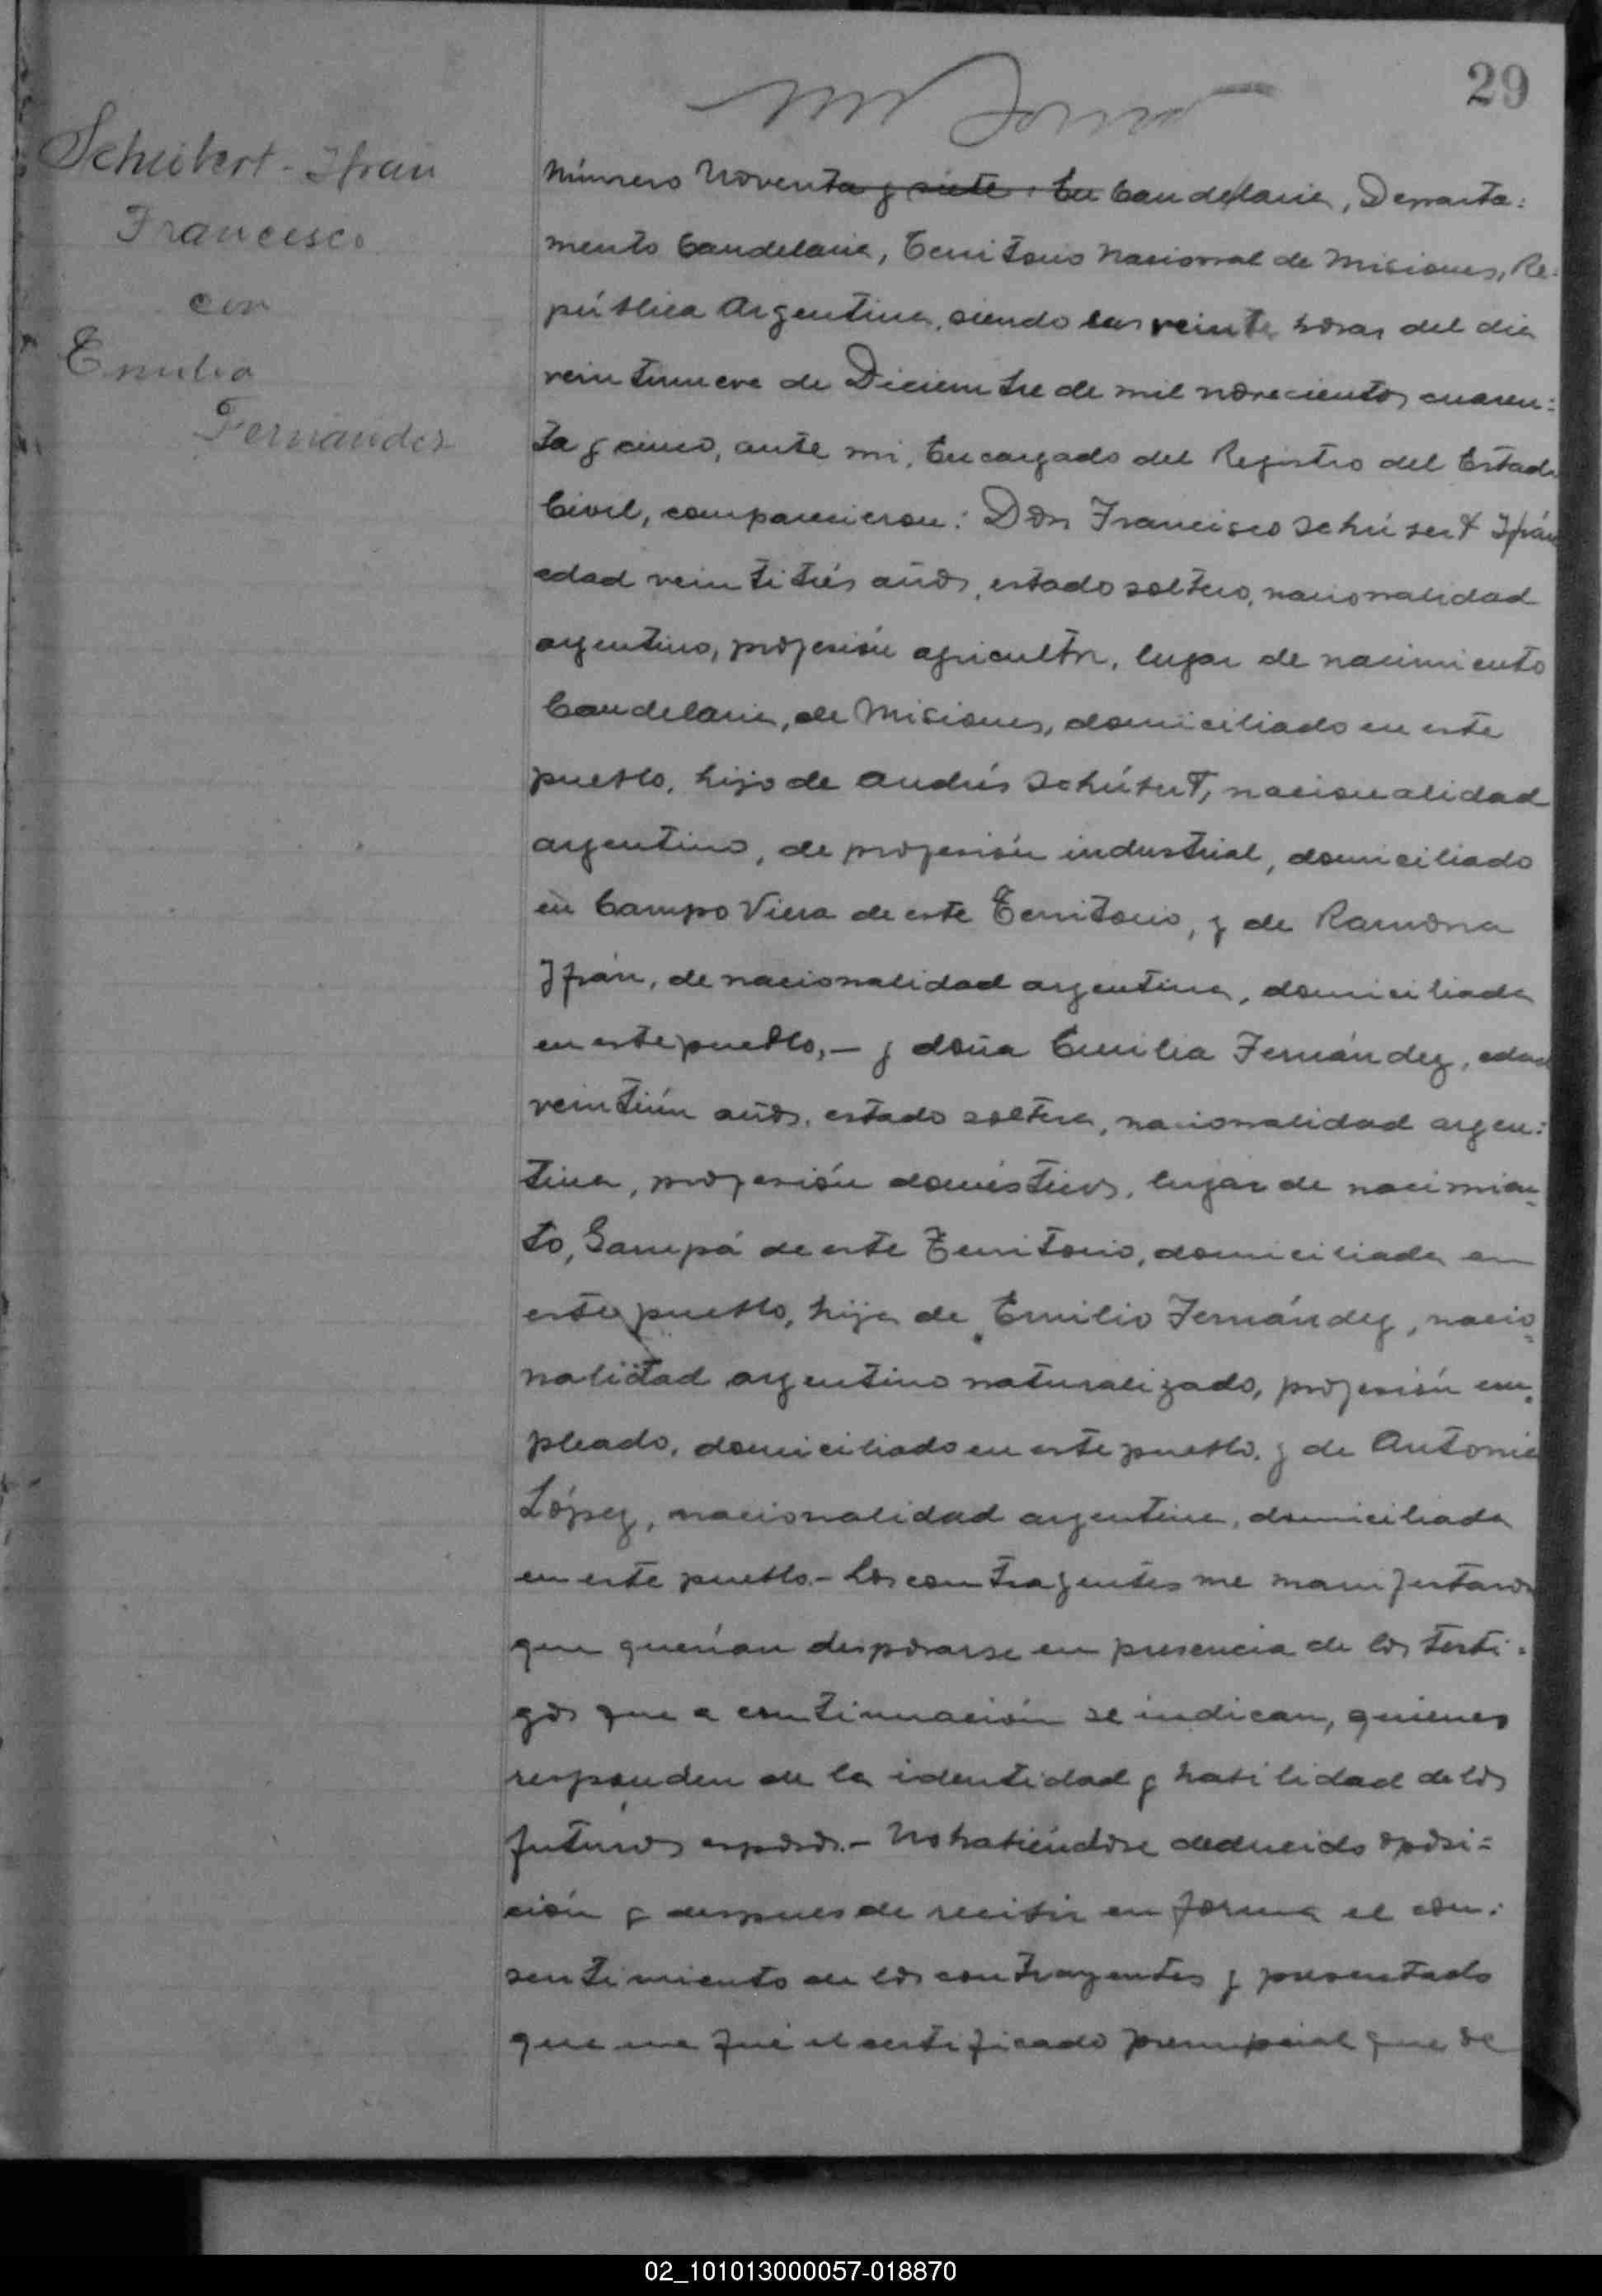 29
Schubert - Ifran
Francisco
con
Emilia
Fernandez
Número Noventa y siete. En Candelaria, Departa:
mento Candelaria, Territorio Nacional de Misiones, Re:
pública Argentina, siendo las veinte horas del dia
veintinueve de Diciembre de mil novecientos cuaren:
ta y cinco, ante mi, Encargado del Registro del Estado
Civil, comparecieron: Don Francisco Schúbert Ifrán
edad veintitrés años, estado soltero, nacionalidad
argentino, profesión agricultor, lugar de nacimiento
Candelaria, de Misiones, domiciliado en este
pueblo, hijo de Andrés Schúbert, nacionalidad
argentino, de profesión industrial, domiciliado
en Campo Viera de este Territorio, y de Ramona
Ifrán, de nacionalidad argentina, domiciliada
en este pueblo, — y doña Emilia Fernández, edad
veintiún años, estado soltera, nacionalidad argen:
tina, profesión domésticos, lugar de nacimien
to, Garupá de este Territorio, domiciliada en
este pueblo, hija de Emilio Fernández, nacio
nalidad argentino naturalizado, profesión em
pleado, domiciliado en este pueblo, y de Antonia
López, nacionalidad argentina, domiciliada
en este pueblo.- Los contrayentes me manifestaron
que querían desposarse en presencia de los testi:
gos que a continuación se indican, quienes
responden de la identidad y habilidad de los
futuros esposos.- No habiéndose deducido oposi=
ción y despues de recibir en forma el con:
sentimiento de los contrayentes y presentado
que me fué el certificado prenupcial que se
02_101013000057-018870